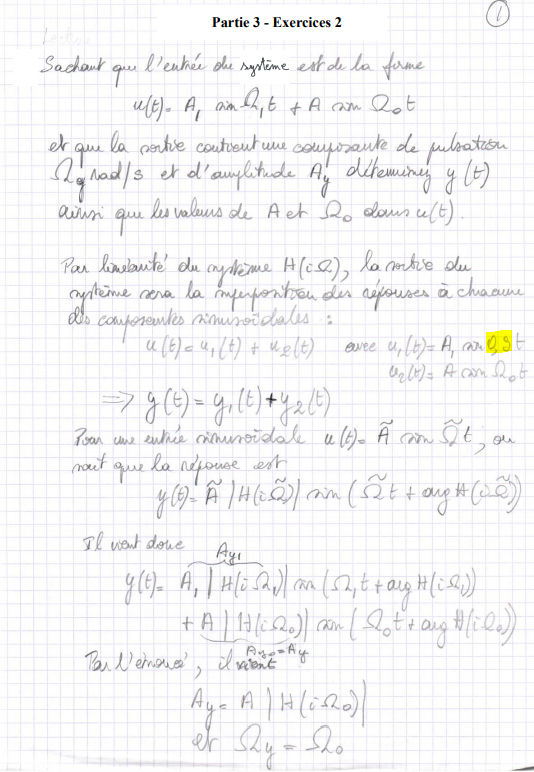 Partie 3 - Exercices 2
1
Sachant que l'entrée du système est de la forme
u(t) = A₁ sin Ω₁t + A sin Ω₀t
et que la sortie contient une composante de pulsation
Ωy rad/s et d'amplitude Ay déterminez y(t)
ainsi que les valeurs de A et Ω₀ dans u(t).
Par linéarité du système H(iΩ), la sortie du
système sera la superposition des réponses à chacune
des composantes sinusoïdales :
u(t) = u₁(t) + u₂(t) avec u₁(t) = A₁ sin 0,3t
u₂(t) = A sin Ω₀t
⟹ y(t) = y₁(t) + y₂(t)
Pour une entrée sinusoïdale u(t) = Ã sin Ω̃t, on
sait que la réponse est
y(t) = Ã |H(iΩ̃)| sin (Ω̃t + arg H(iΩ̃))
Il vient donc
Ay₁
y(t) = A₁ |H(iΩ₁)| sin (Ω₁t + arg H(iΩ₁))
+ A |H(iΩ₀)| sin (Ω₀t + arg H(iΩ₀))
Ay₀ = Ay
Par l'énoncé, il vient
Ay = A |H(iΩ₀)|
et Ωy = Ω₀